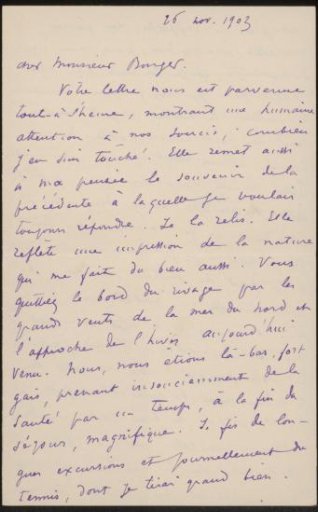 26 nov. 1903
cher Monsieur Burger.
Votre lettre nous est parvenue
tout-à-l'heure, montrant une humaine
attention à nos soucis; combien
j'en suis touché. Elle remet aussi
à ma pensée le souvenir de la
précédente à laquelle je voulais
toujours répondre. Je la relis. Elle
reflète une impression de la nature
qui me fait du bien aussi. Vous
quittiez le bord du rivage par les
grands vents de la mer du nord et
l'approche de l'hiver aujourd'hui
venu. Nous, nous étions là-bas, fort
gais, prenant insouciamment de la
santé par un temps, à la fin du
séjour, magnifique. Je fis de lon-
gues excursions et journellement du
tennis, dont je tirai grand bien.